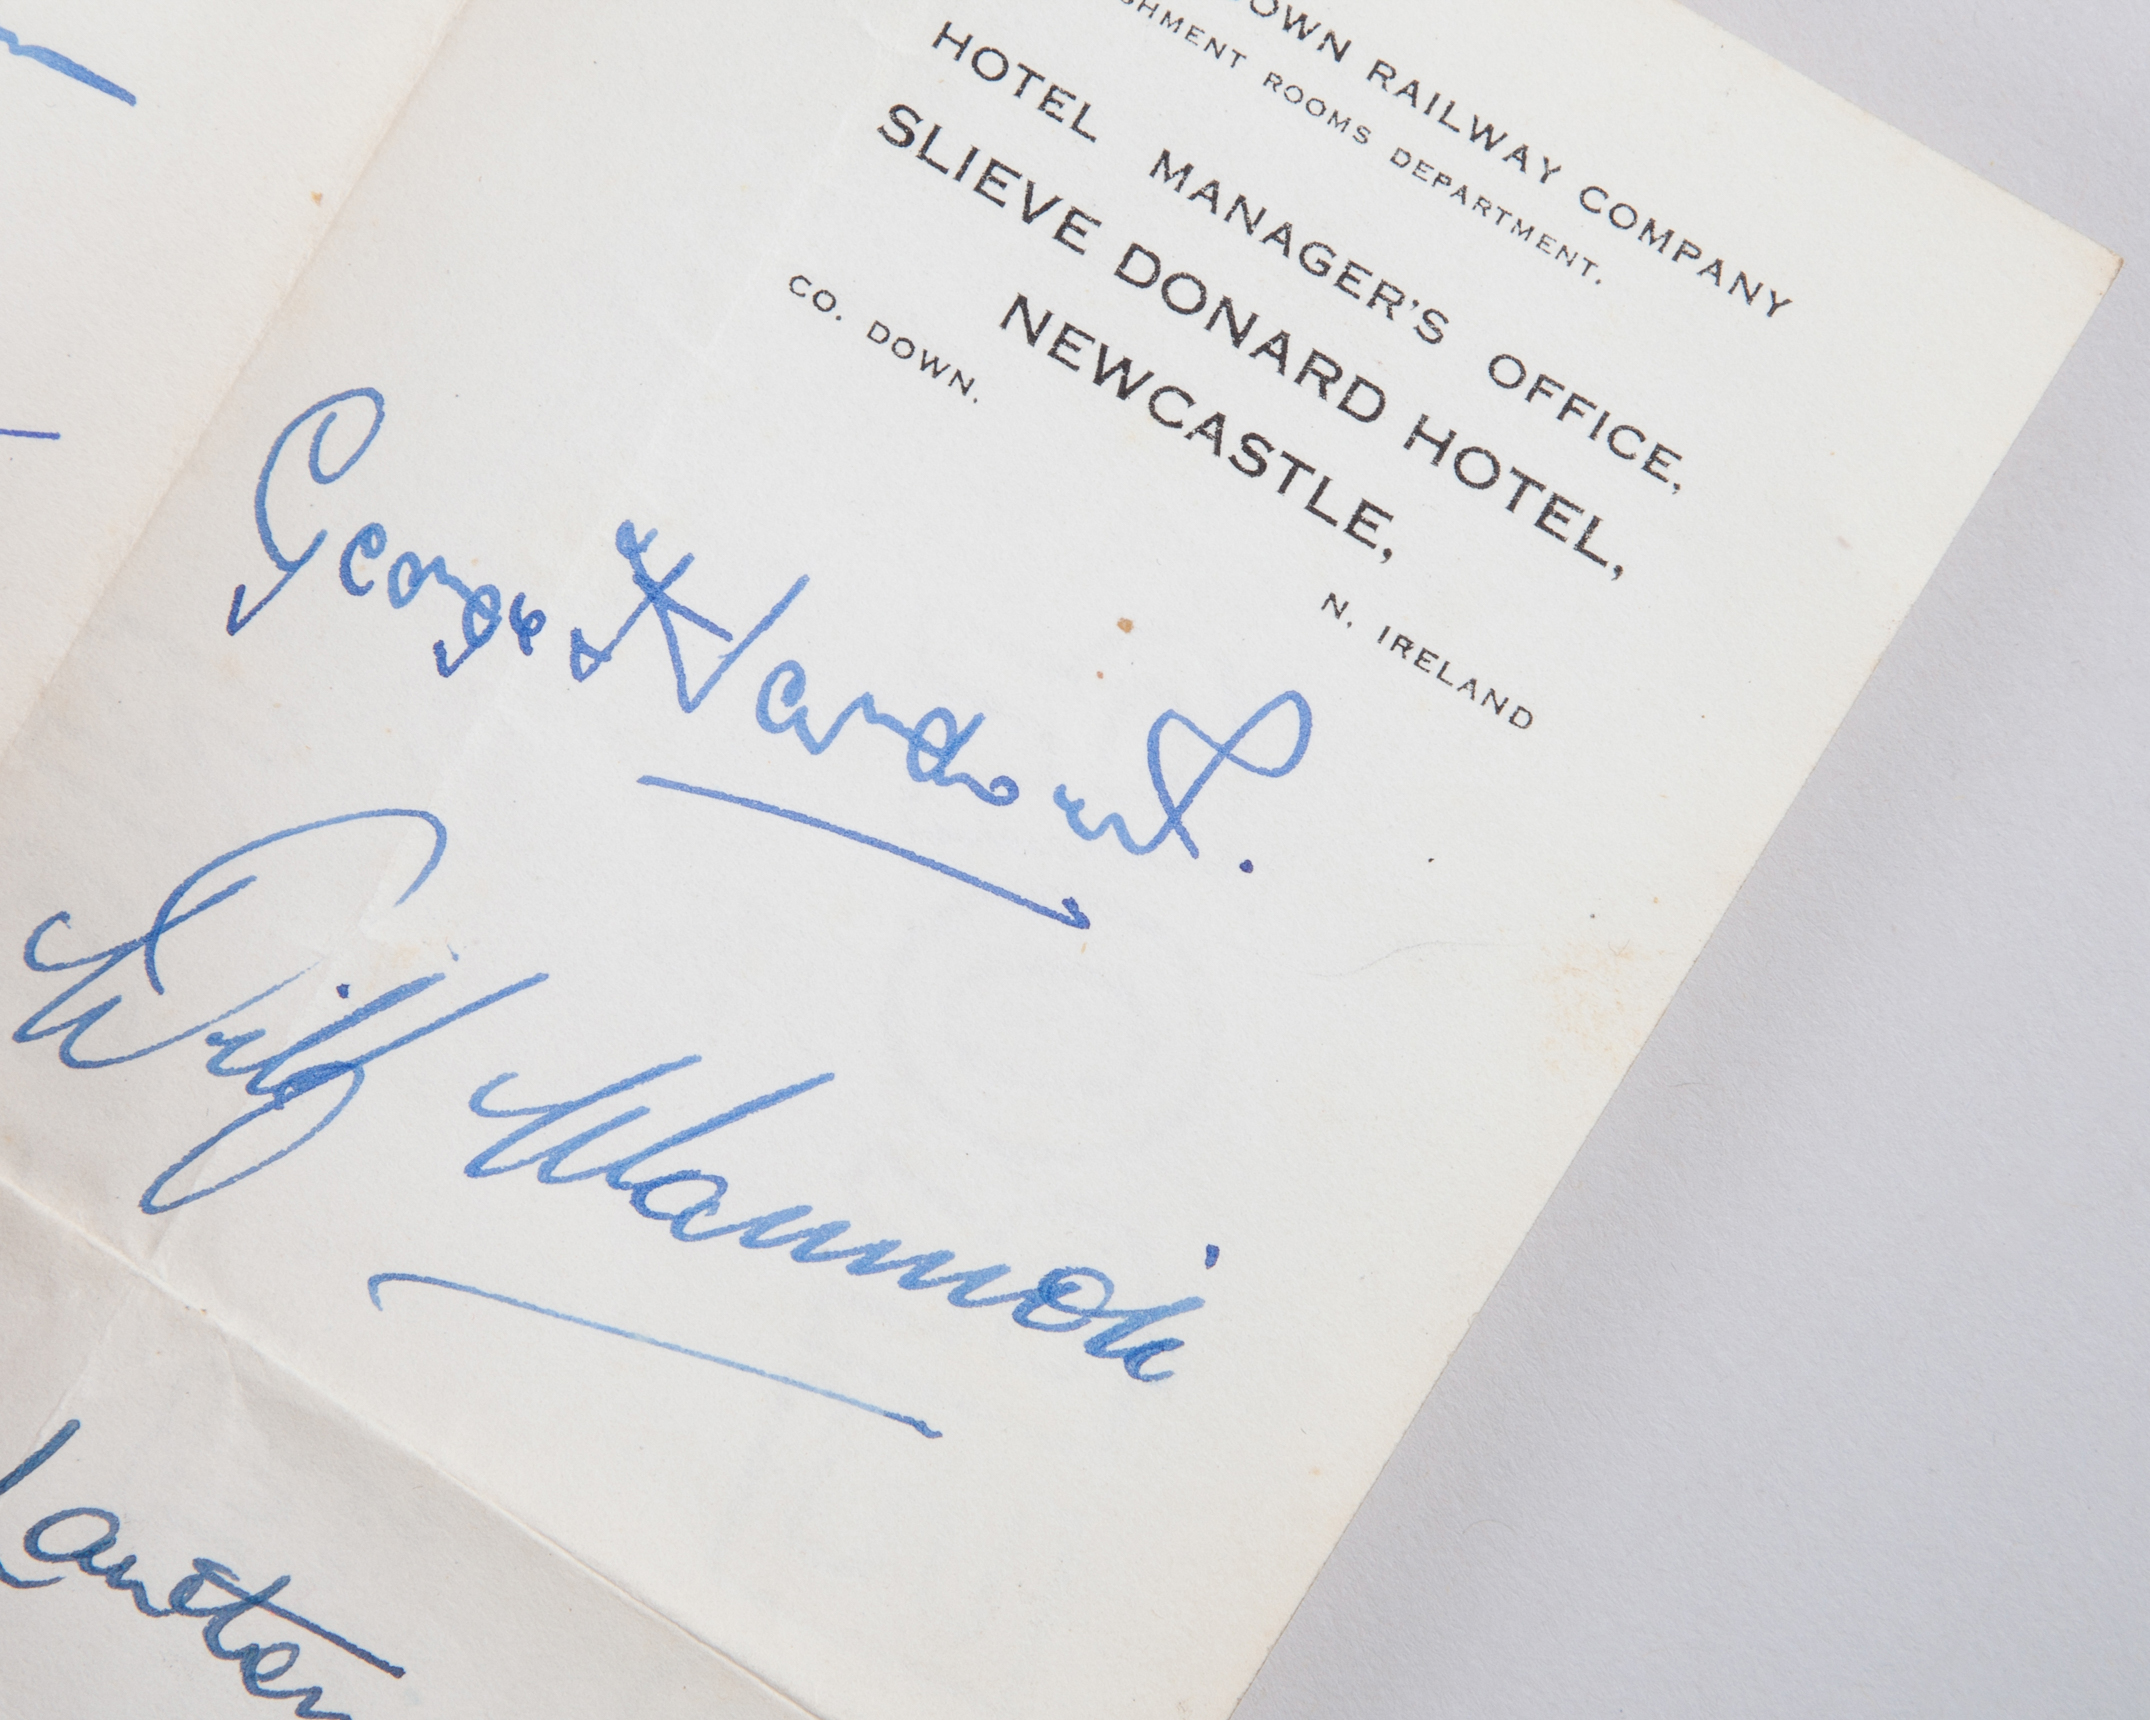 DOWN RAILWAY COMPANY
SHMENT ROOMS DEPARTMENT.
HOTEL MANAGER'S OFFICE,
SLIEVE DONARD HOTEL,
NEWCASTLE,
CO. DOWN.
N. IRELAND
George
Wilf Mannion